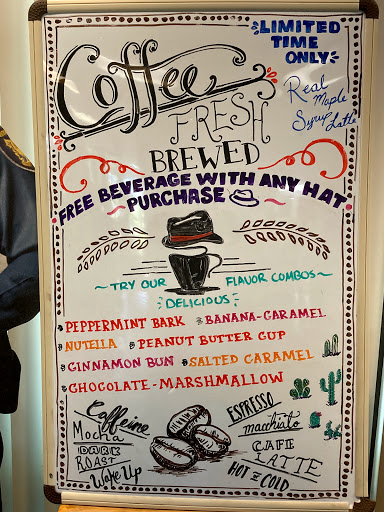 Coffee
LIMITED
TIME
ONLY
Real
Maple
Syrup Latte
FRESH
BREWED
FREE BEVERAGE WITH ANY HAT
~ PURCHASE
~ TRY OUR FLAVOR COMBOS ~
DELICIOUS
PEPPERMINT BARK BANANA-CARAMEL
NUTELLA PEANUT BUTTER CUP
CINNAMON BUN SALTED CARAMEL
CHOCOLATE-MARSHMALLOW
Caffeine
Mocha
DARK
ROAST
Wake Up
ESPRESSO
macchiato
CAFE
LATTE
HOT or COLD